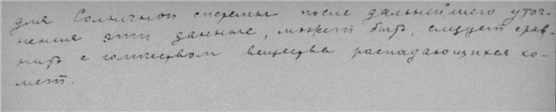 для Солнечной системы после дальнейшего уточ-
нения эти данные, может быть, следует срав-
нить с количеством вещества распадающихся ко-
мет.